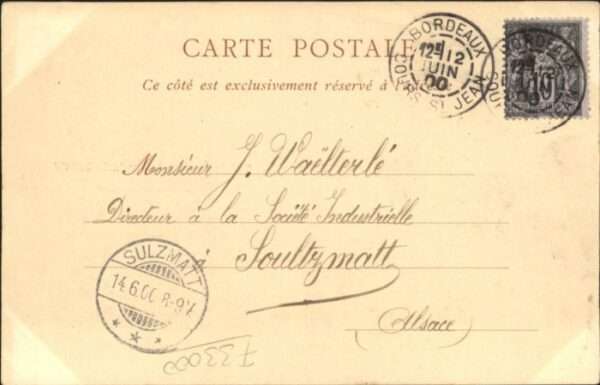 CARTE POSTALE
Ce côté est exclusivement réservé à l'adresse
BORDEAUX
12E 12
JUIN
00
COURS ST JEAN
BORDEAUX
10
Monsieur J. Waëlterlé
Directeur à la Société Industrielle
à Soultzmatt
Alsace
SULZMATT
14.6.00.8-9V.
733000